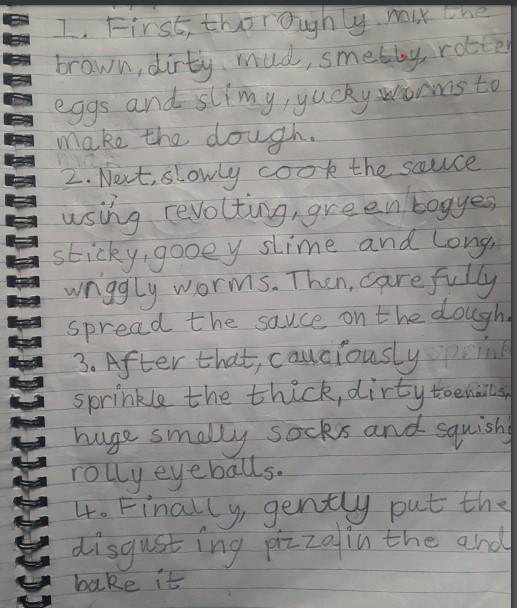 1. First, thoroughly mix the
brown, dirty mud, smelly, rotten
eggs and slimy, yucky worms to
make the dough.
2. Next, slowly cook the sauce
using revolting, green bogyes,
sticky, gooey slime and long,
wriggly worms. Then, carefully
spread the sauce on the dough.
3. After that, cauciously sprink
sprinkle the thick, dirty toenails,
huge smelly socks and squishy
rolly eyeballs.
4. Finally, gently put the
disgusting pizza in the and
bake it